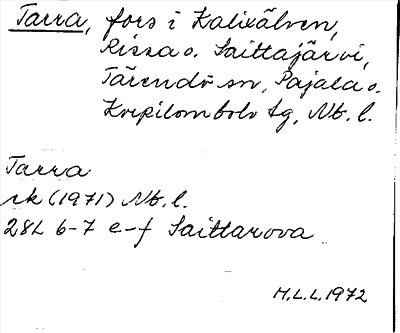 Tarra, fors i Kalixälven,
Rissa o. Saittajärvi,
Tärendö sn, Pajala o.
Korpilombolo tg, Nb. l.
Tarra
rk (1971) Nb. l.
28L 6-7 e-f Saittarova
M.L.L. 1972